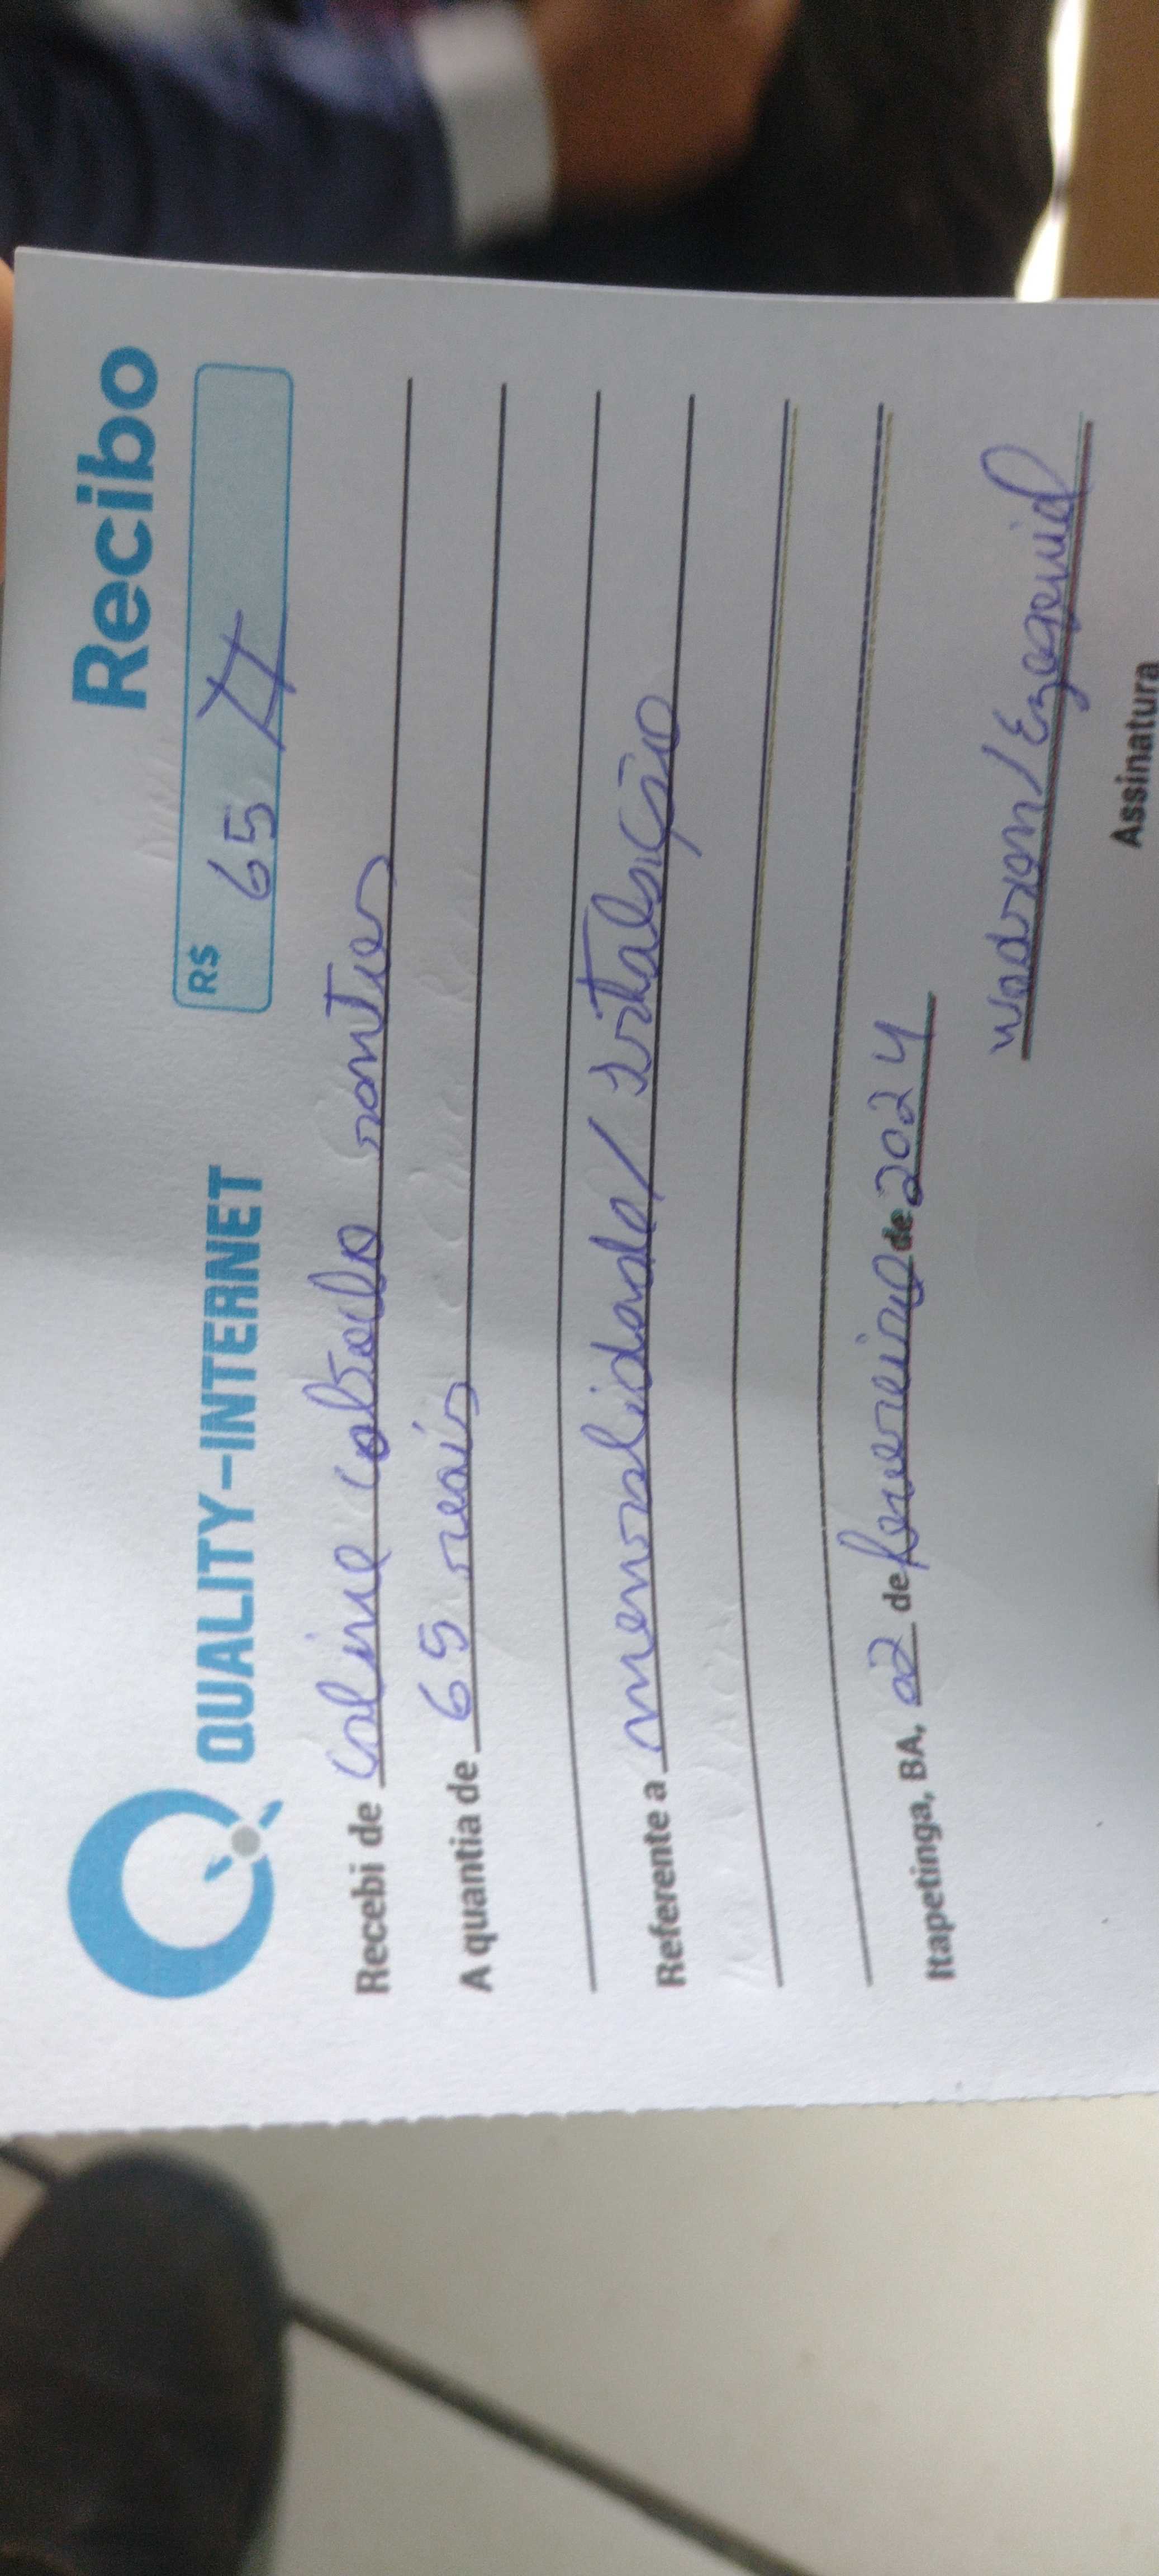 QUALITY-INTERNET
Recibo
R$ 65
Recebi de Caline Santos
A quantia de 65 reais
Referente a mensalidade / Istalação
Itapetinga, BA, 02 de fevereiro de 2024
Wadson / Ezequiel
Assinatura